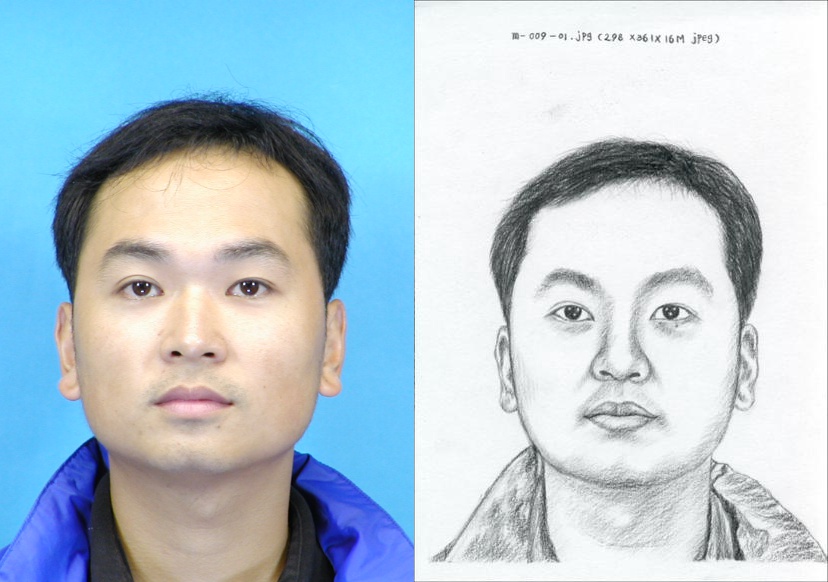 m-009-01.jpg (298 x361x16M jpeg)